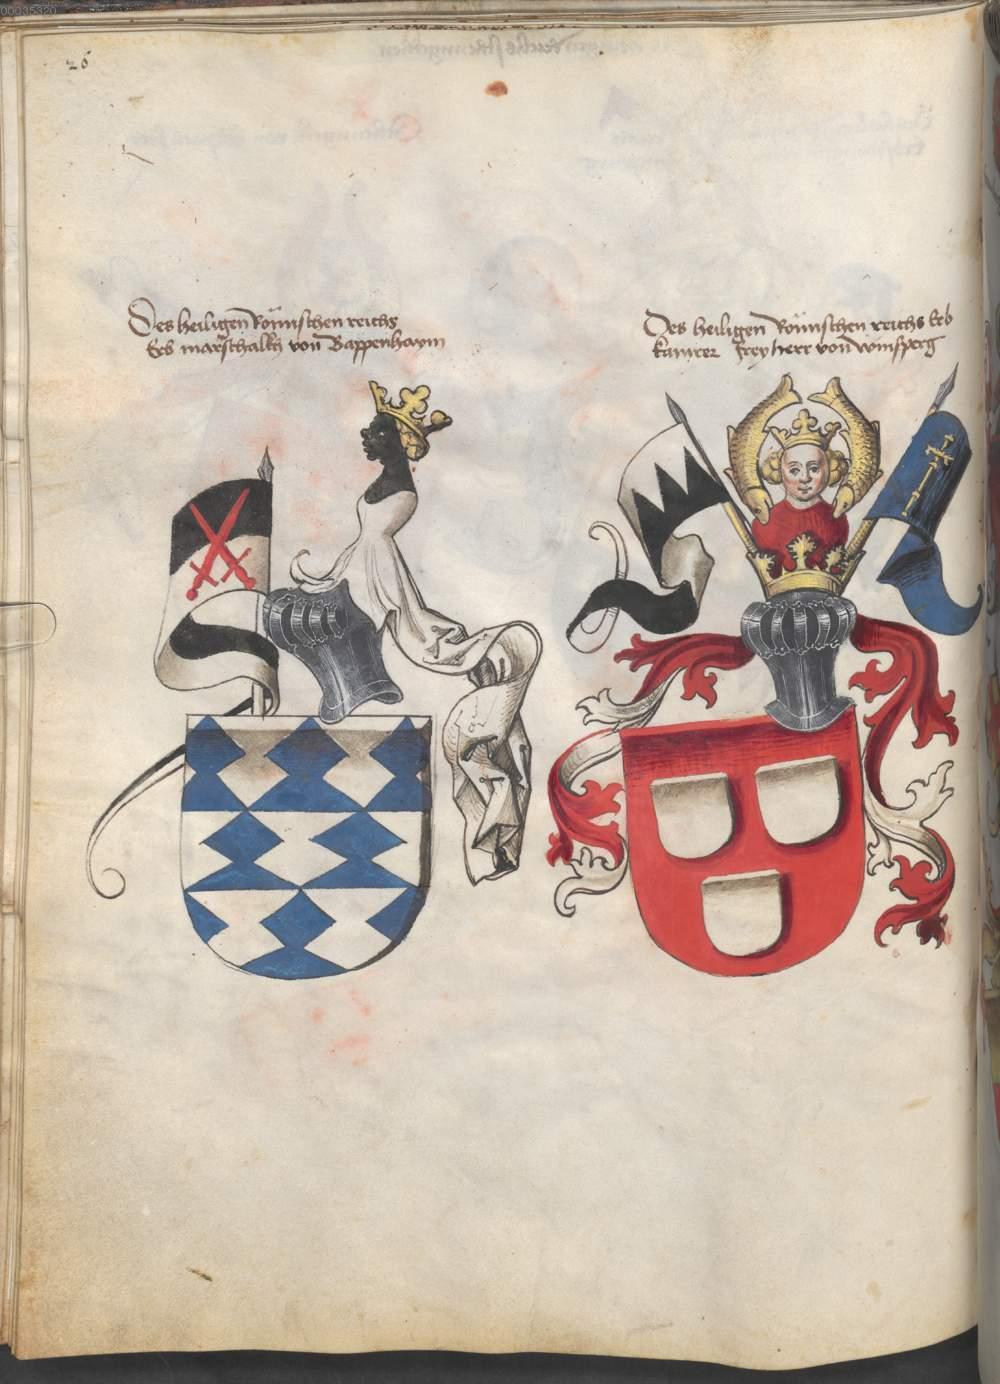 00035320
26
Des heiligen Römischen reichs
Erb marschalkh von Bappenhaym
Des heiligen Römischen reichs Erb
kamrer freyherr von winsperg